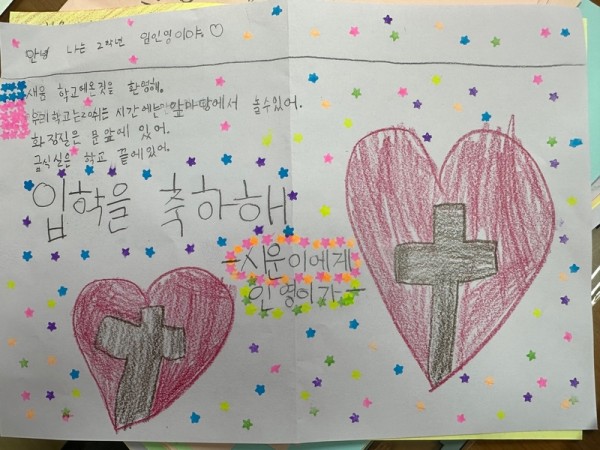 안녕 나는 2학년 임인영이야♡
새움 학교에온것을 환영해.
우리학교는 쉬는 시간에는 앞마당에서 놀수있어.
화장실은 문앞에 있어.
급식실은 학교 끝에있어.
입학을 축하해
-시운이에게
인영이가-